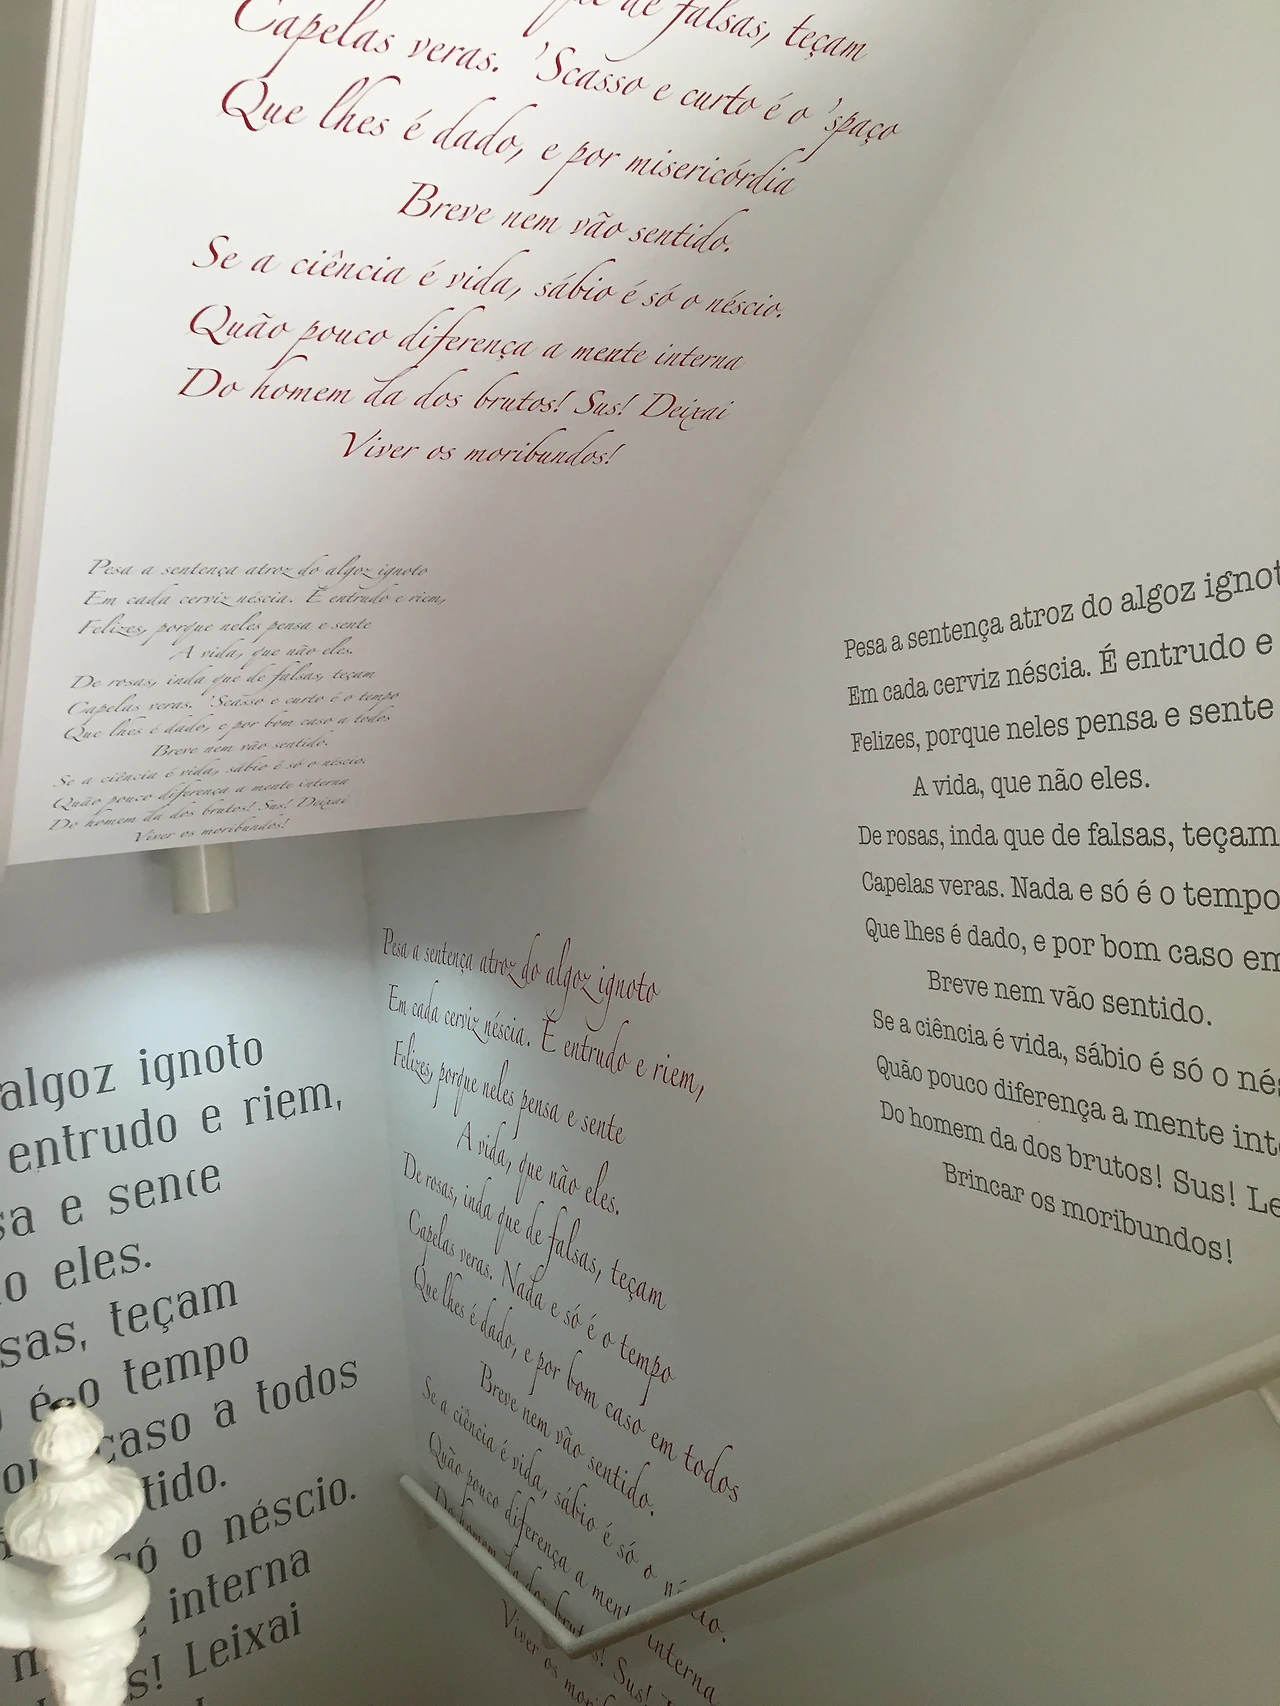 que de falsas, teçam
Capelas veras. 'Scasso e curto é o 'spaço
Que lhes é dado, e por misericórdia
Breve nem vão sentido.
Se a ciência é vida, sábio é só o néscio.
Quão pouco diferença a mente interna
Do homem da dos brutos! Sus! Deixai
Viver os moribundos!
Pesa a sentença atroz do algoz ignoto
Em cada cerviz néscia. É entrudo e riem,
Felizes, porque neles pensa e sente
A vida, que não eles.
De rosas, inda que de falsas, teçam
Capelas veras. 'Scasso e curto é o tempo
Que lhes é dado, e por bom caso a todos
Breve nem vão sentido.
Se a ciência é vida, sábio é só o néscio.
Quão pouco diferença a mente interna
Do homem da dos brutos! Sus! Deixai
Viver os moribundos!
algoz ignoto
entrudo e riem,
sa e sente
o eles.
sas, teçam
é o tempo
caso a todos
tido.
só o néscio.
interna
s! Leixai
Pesa a sentença atroz do algoz ignoto
Em cada cerviz néscia. É entrudo e riem,
Felizes, porque neles pensa e sente
A vida, que não eles.
De rosas, inda que de falsas, teçam
Capelas veras. Nada e só é o tempo
Que lhes é dado, e por bom caso em todos
Breve nem vão sentido.
Se a ciência é vida, sábio é só o néscio.
Quão pouco diferença a mente interna
Do homem da dos brutos! Sus!
Viver os mori
Pesa a sentença atroz do algoz ignot
Em cada cerviz néscia. É entrudo e
Felizes, porque neles pensa e sente
A vida, que não eles.
De rosas, inda que de falsas, teçam
Capelas veras. Nada e só é o tempo
Que lhes é dado, e por bom caso em
Breve nem vão sentido.
Se a ciência é vida, sábio é só o nés
Quão pouco diferença a mente inte
Do homem da dos brutos! Sus! Le
Brincar os moribundos!